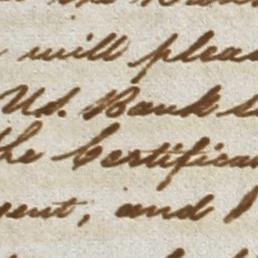 will pleas
Us. Bank
the Certifica
ent, and